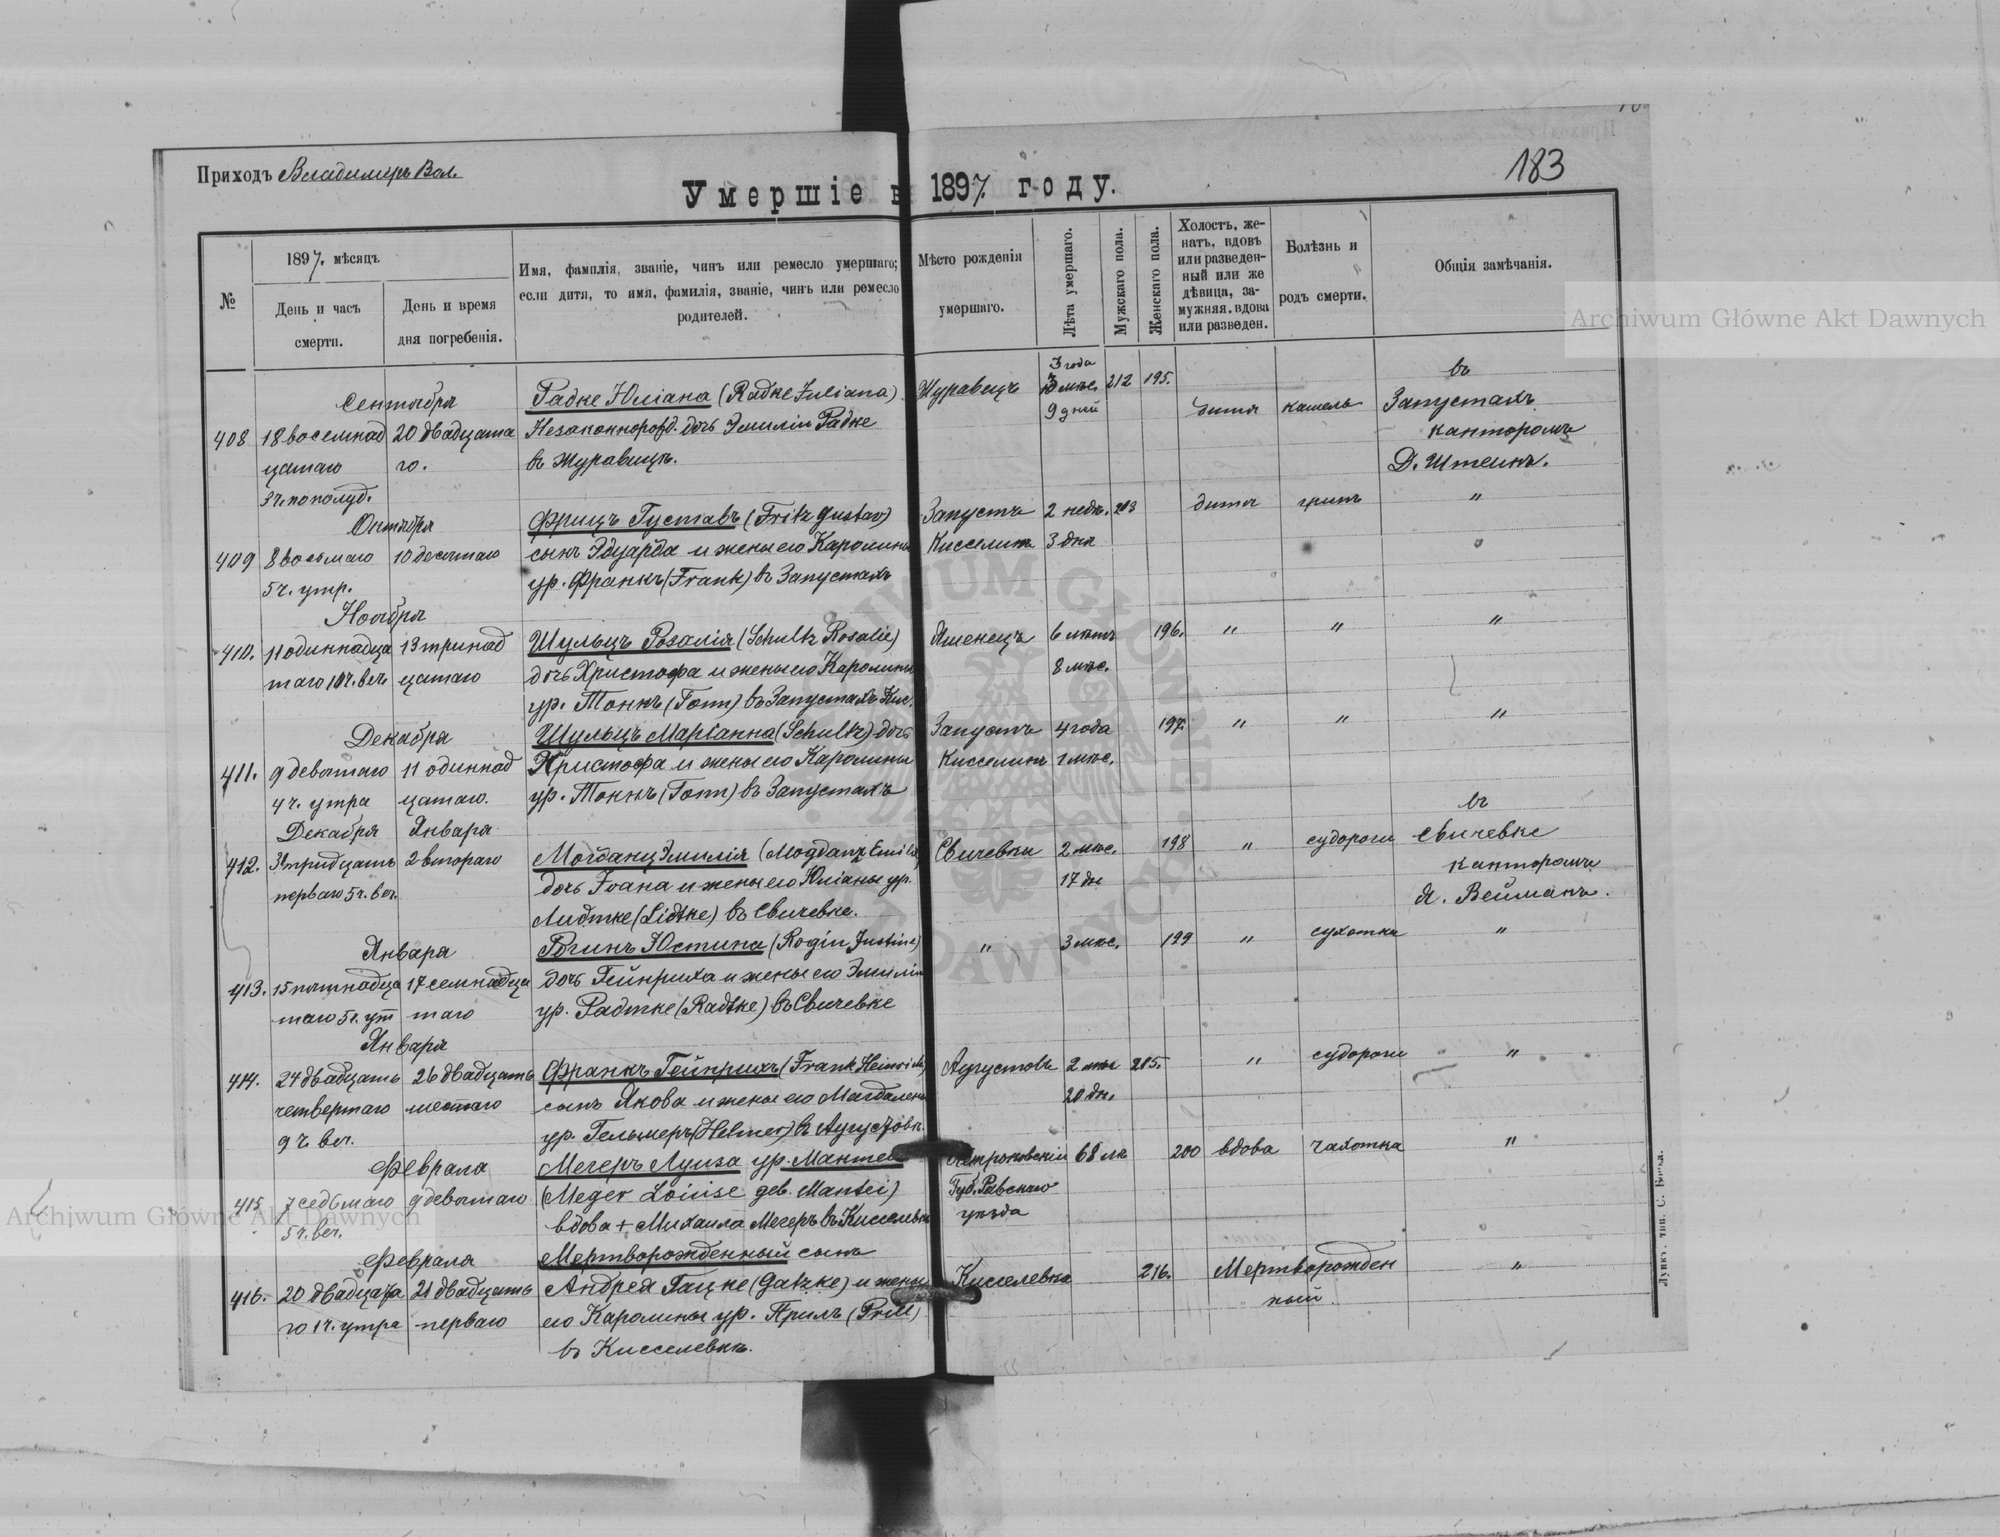 Приходъ Владимиръ Вол.
Умершіе в 1897. году.
183
№
1897. мѣсяцъ
День и часъ смерти.
День и время дня погребенія.
Имя, фамилія, званіе, чинъ или ремесло умершаго;
если дитя, то имя, фамилія, званіе, чинъ или ремесло
родителей.
Мѣсто рожденія
умершаго.
Лѣта умершаго.
Мужскаго пола.
Женскаго пола.
Холостъ, же-
натъ, вдовъ
или разведен-
ный или же
дѣвица, за-
мужняя, вдова
или разведен.
Болѣзнь и
родъ смерти.
Общія замѣчанія.
Archiwum Główne Akt Dawnych
3 года
въ
Сентября
Радке Юліана (Radke Juliana) Журавецъ мѣс. 212 195.
9 дней дитя кашель Запустахъ
408 18 восемнад 20 двадцата Незаконнорожд. дочь Эмиліи Радке
канторомъ
цатаго го. въ Журавицѣ.
Д. Штеинъ.
3 ч. пополуд.
Октября
Фрицъ Густавъ (Fritz Gustav) Запустъ 2 недѣ. дитя "
409 8 восьмаго 10 десятаго сынъ Эдуарда и жены его Каролины Кисселинъ 3 дня "
5 ч. утр. ур. Франкъ (Frank) въ Запустахъ
Ноября
Шульцъ Розалія (Schultz Rosalie) 6 лѣтъ 196. " " "
410. 11 одиннадца 13 тринад дочь Христофа и жены его Каролины 8 мѣс.
таго 10 ч. веч. цатаго ур. Тоннъ (Tonn) въ Запустахъ Кис.
Декабря
Шульцъ Маріанна (Schultz) дочь Запустъ 4 года 197. " " "
411. 9 девятаго 11 одиннад Христофа и жены его Каролины Кисселинъ 1 мѣс.
4 ч. утра цатаго. ур. Тоннъ (Tonn) въ Запустахъ
въ
Декабря Января
412. 31 тридцать 2 втораго Могданц Эмилія (Mogdanz Emilie) Свичевки 2 мѣс. 198 " судороги Свичевке
перваго 5 ч. веч. дочь Іоана и жены его Юліаны ур. 17 дн канторомъ
Лидтке (Lidtke) въ Свичевке. Я. Вейманъ.
Января
Рогинъ Юстина (Rogin Justine) " 3 мѣс. 199 " сухотка "
413. 15 пятнадца 17 семнадца дочь Гейнриха и жены его Эмиліи
таго 5 ч. ут таго ур. Радтке (Radtke) въ Свичевке
Января
414. 24 двадцать 26 двадцать Франкъ Гейнрихъ (Frank Heinrich) Аугустовъ 2 мѣс 215. " судороги "
четвертаго шестаго сынъ Якова и жены его Магдалены 20 дн.
9 ч. веч. ур. Гельмеръ (Helmer) в Аугустовк.
Февраля
Мегеръ Луиза ур. Мантеи Петроковскій 68 лѣ 200 вдова чахотка "
415 7 седьмаго 9 девятаго (Meger Louise geb. Mantei) Губ. Равскаго
5 ч. веч. вдова + Михаила Мегеръ въ Кисселевк уѣзда
Февраля
Мертворожденный сынъ
416. 20 двадцата 21 двадцать Андрея Гацке (Gatzke) и жены Кисселевка 216. Мертворожден "
го 1 ч. утра перваго его Каролины ур. Прилъ (Prill) ный
въ Кисселевкѣ.
Archiwum Główne Akt Dawnych